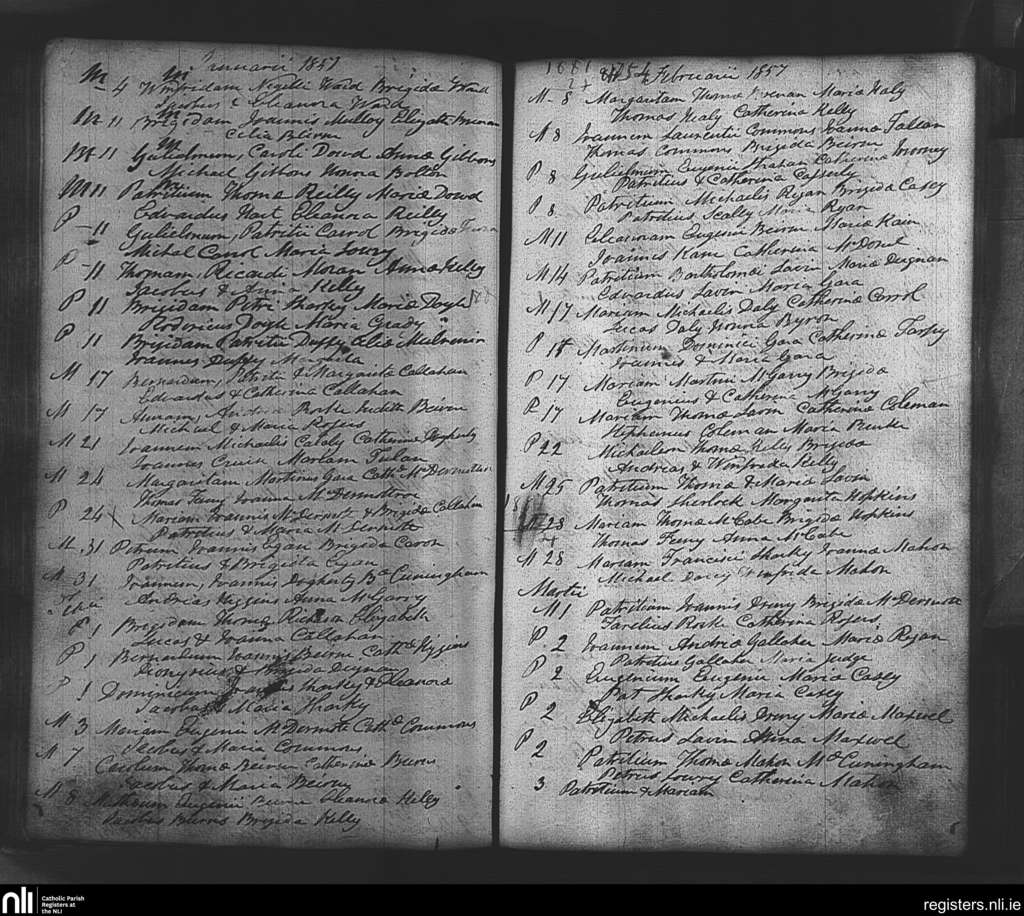 Januarii 1857
M 4 Winfridam Nigelli Ward Brigida Ward
Jacobus & Eleanora Ward
M 11 Brigidam Joannis Molloy Elizath Brenan
Celia Beirne
M 11 Gulielmum, Caroli Dowd Anna Gibbons
Michael Gibbons Honora Bolton
M 11 Patritium Thoma Reilly Maria Dowd
Edwardus Hart Eleanora Reilly
P - 11 Gulielmum, Patritii Carrol Brigida
Michal Carrol Maria Lowry
P - 11 Thomam, Ricardi Moran Anna Kelly
Jacobus & Anna Kelly
P 11 Brigidam Petri Sharky Maria Doyle
Rodoricus Doyle Maria Grady
P 11 Brigidam Patritii Duffy Elia
Joannes Duffy Margarita
M 17 Bernardum, Patritii & Margarita Callahan
Edwardus & Catherina Callahan
M 17 Annam, Andria Rorke Judith Beirne
Michael & Maria Rogers
M 21 Joannem Michaelis Catherina Dogherty
Joannes Mariam
M 24 Margaritam Martinus Gara Cath McDermottroe
Thomas Feeny Joanna McDermottroe
P 24 X Mariam Joannis McDermott & Brigida Callahan
Patritius & Maria McDermott
M 31 Petrum Joannis Egan Brigida
Patritius & Brigida Egan
M 31 Joannem, Joannis Dogherty Ba Cuningham
Andrias Higgins Anna McGarry
P 1 Brigidam Thoma Elizabeth
Lucas & Joanna Callahan
P 1 Bernardum Joannis Beirne Cath Higgins
Dionysius & Brigida Deignan
P 1 Dominicum Sharkey & Eleanora
Jacobus & Maria Sharky
M 3 Mariam Eugenii McDermott Cath Commons
Jacobus & Maria Commons
M 7 Carolum Thoma Beirne Catherina Beirne
Jacobus & Maria Beirne
M 8 Eugenii Beirne Eleanora Kelly
Jacobus Beirne Brigida Kelly
1881
Februarii 1857
M - 8 Margaritam Thoma Maria Healy
Thomas Healy Catherina Kelly
M 8 Joannem Laurentii Commons Joanna
Thomas Commons Brigida Beirne
P 8 Gulielmum Eugenii Catherina
Patritius & Catherina Casserly
P 8 Patritium Michaelis Ryan Brigida Casey
Patritius Scally Maria Ryan
M 11 Eleanoram Eugenii Beirne Maria Kain
Joannis Kane Catherina McDonel
M 14 Patritium Bartholomai Lavin Maria Deignan
Edwardus Lavin Maria Gara
M 17 Mariam Michaelis Daly Catherina Carrol
Lucas Daly Honora Byron
P 17 Martinum Dominici Gara Catherina Tarpy
Joannes & Maria Gara
P 17 Mariam Martini McGarry Brigida
Eugenius & Catherina McGarry
P 17 Mariam Thoma Lavin Catherina Coleman
Stephenus Coleman Maria Burke
P 22 Michaelem Thoma Kelly Brigida
Andrias & Winfrida Kelly
M 25 Patritium Thoma & Maria Lavin
Thomas Sherlock Margarita Hopkins
M 28 Mariam Thoma McCabe Brigida Hopkins
Thomas Feeny Anna McCabe
M 28 Mariam Francisci Sharky Joanna Mahon
Michael Darcy Winfrida Mahon
Martii
M 1 Patritium Joannis Drury Brigida McDermott
Rorke Catherina Rogers
P. 2 Joannem Andria Gallaher Maria Ryan
Patritius Gallaher Maria Judge
P 2 Eugenium Eugenii Maria Casey
Pat Sharky Maria Casey
P 2 Elizabeth Michaelis Drury Maria Maxwel
Petrus Lavin Anna Maxwel
P 2 Patritium Thoma Mahon Ma Cuningham
Petrus Lowry Catherina Mahon
3 Patritium & Mariam
nli
Catholic Parish
Registers at
the NLI
registers.nli.ie